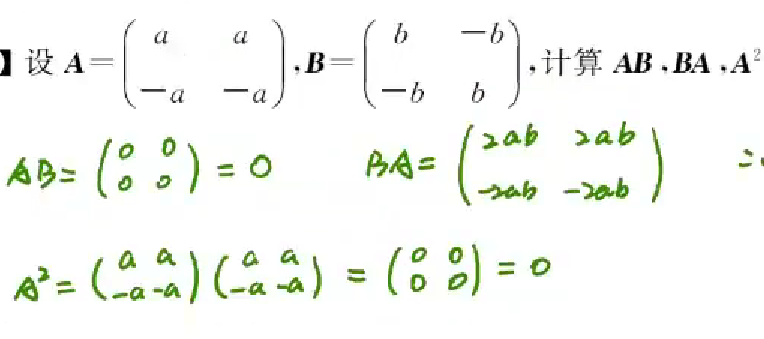 】设 A=(a a; -a -a),B=(b -b; -b b),计算 AB,BA,A²
AB=(0 0; 0 0)=0 BA=(2ab 2ab; -2ab -2ab)
A²=(a a; -a -a)(a a; -a -a)=(0 0; 0 0)=0